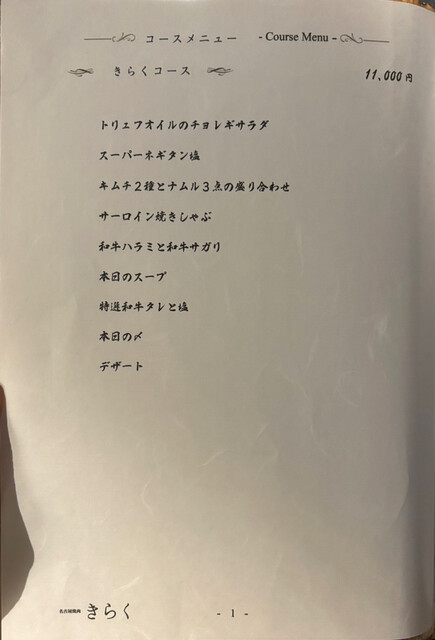 コースメニュー - Course Menu -
きらくコース 11,000円
トリュフオイルのチョレギサラダ
スーパーネギタン塩
キムチ2種とナムル3点の盛り合わせ
サーロイン焼きしゃぶ
和牛ハラミと和牛サガリ
本日のスープ
特選和牛タレと塩
本日の〆
デザート
名古屋焼肉 きらく
- 1 -